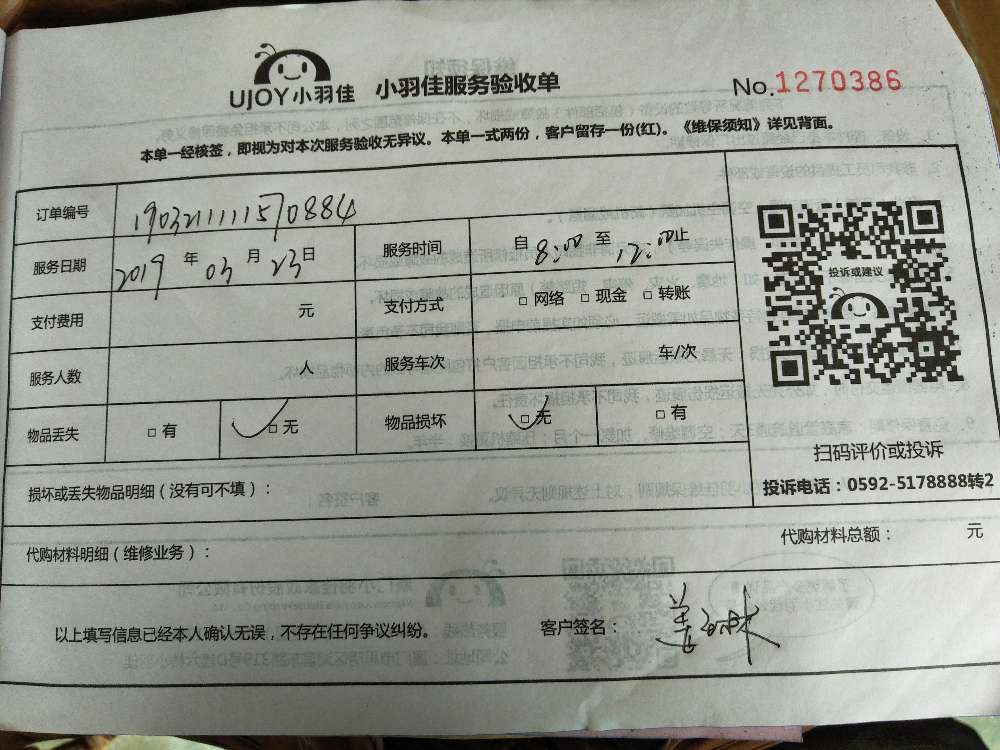 UJOY小羽佳 小羽佳服务验收单 No.1270386
本单一经核签，即视为对本次服务验收无异议。本单一式两份，客户留存一份(红)。《维保须知》详见背面。
订单编号 190321111570884
服务日期 2019年03月23日 服务时间 自8:00至12:00止
支付费用 元 支付方式 □ 网络 □ 现金 □ 转账
服务人数 人 服务车次 车/次
物品丢失 □ 有 □ 无 物品损坏 □ 无 □ 有
投诉或建议
扫码评价或投诉
投诉电话：0592-5178888转2
损坏或丢失物品明细（没有可不填）：
代购材料明细（维修业务）： 代购材料总额： 元
以上填写信息已经本人确认无误，不存在任何争议纠纷。 客户签名：